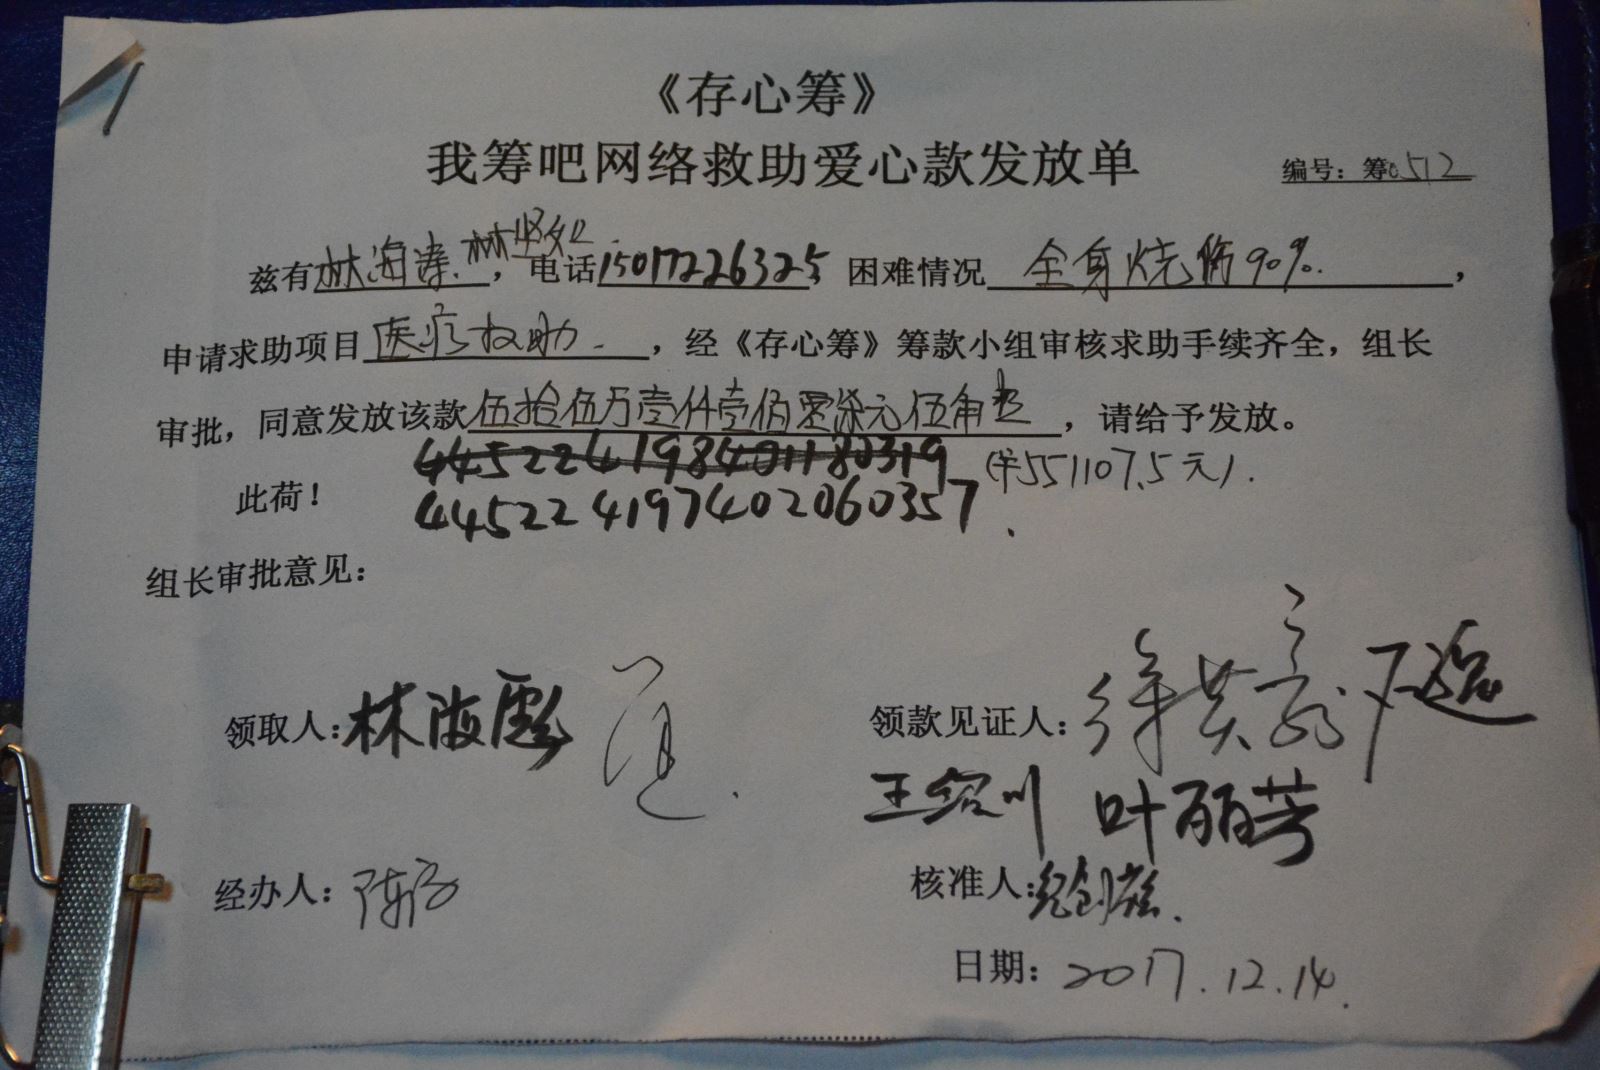 《存心筹》
我筹吧网络救助爱心款发放单
编号：筹0512
兹有林海涛.林坚如，电话15017226325 困难情况 全身烧伤90%.，
申请求助项目医疗救助.，经《存心筹》筹款小组审核求助手续齐全，组长
审批，同意发放该款伍拾伍万壹仟壹佰零柒元伍角整，请给予发放。
445224198401180319 (¥551107.5元).
此荷！ 445224197402060357.
组长审批意见：
领取人：林海
领款见证人：徐英
王绍川 叶丽芳
经办人：陈
核准人：
日期：2017.12.14.